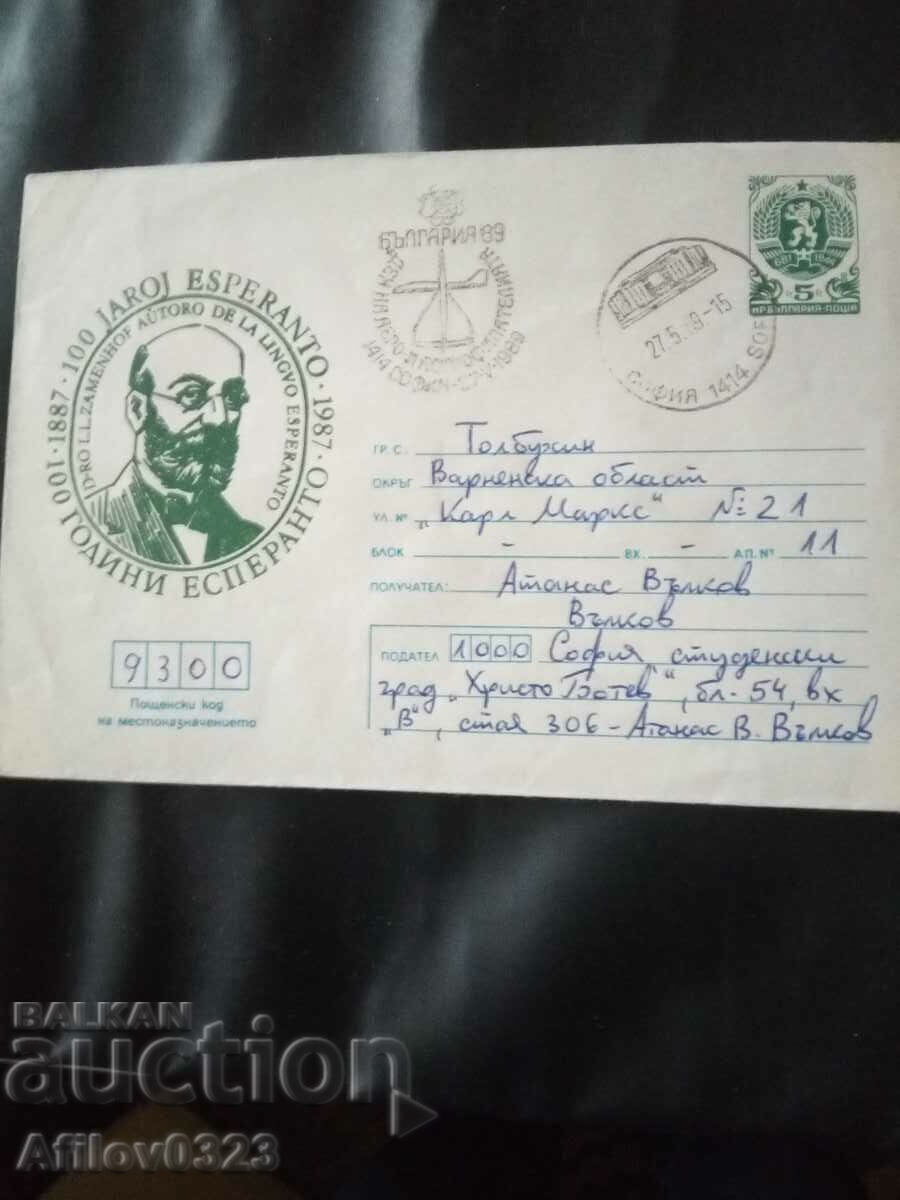 100 ГОДИНИ ЕСПЕРАНТО · 1887 · 100 JAROJ ESPERANTO · 1987 ·
D-RO L.L. ZAMENHOF AŬTORO DE LA LINGVO ESPERANTO
БЪЛГАРИЯ'89
ДЕН НА
1414 СОФИЯ
27.5.89-15
СОФИЯ 1414 SOF
681 1944
5
НР БЪЛГАРИЯ · ПОЩА
ГР. С. Толбухин
ОКРЪГ Варненска област
УЛ. № „Карл Маркс“ №: 21
БЛОК - ВХ. - АП. № 11
ПОЛУЧАТЕЛ: Атанас Вълков
Вълков
ПОДАТЕЛ 1000 София, студентски
град „Христо Ботев“, бл. 54, вх
„В“, стая 306 - Атанас В. Вълков
9300
Пощенски код
на местоназначението
BALKAN
auction
Afilov0323